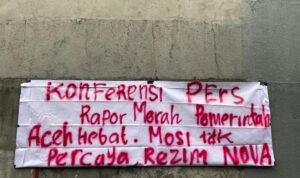 Konferensi Pers
Rapor Merah Pemerintah
Aceh Hebat. Mosi tdk
Percaya Rezim NOVA